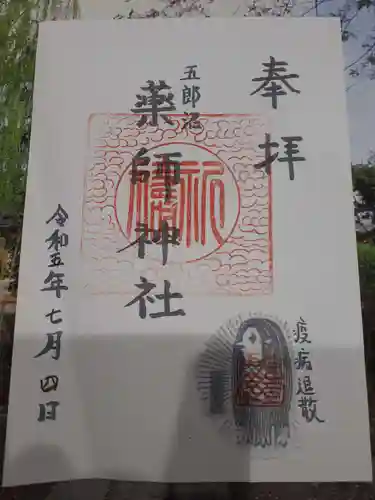 奉拝
五郎沼
薬師神社
令和五年七月四日
疫病退散